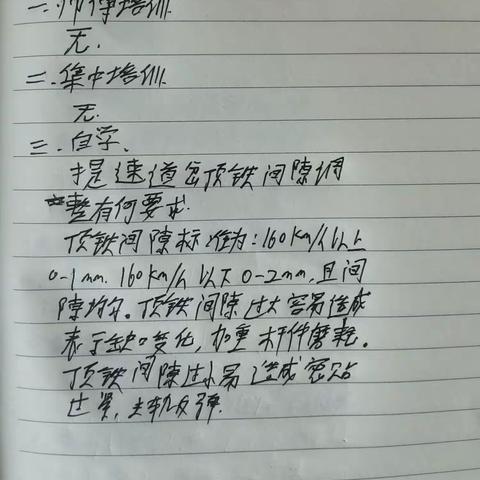 一.师傅培训
无.
二.集中培训
无.
三.自学.
提速道岔顶铁间隙调
整有何要求.
顶铁间隙标准为:160km/h以上
0-1mm.160km/h以下0-2mm,且间
隙均匀。顶铁间隙过大容易造成
表示缺口变化,加重杆件磨耗。
顶铁间隙过小易造成密贴
过紧,尖轨反弹.